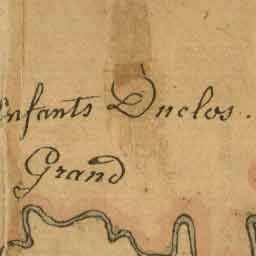 Enfants Duclos.
Grand